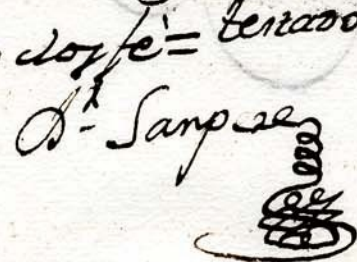 doy fe = testado
Dr Sanpere